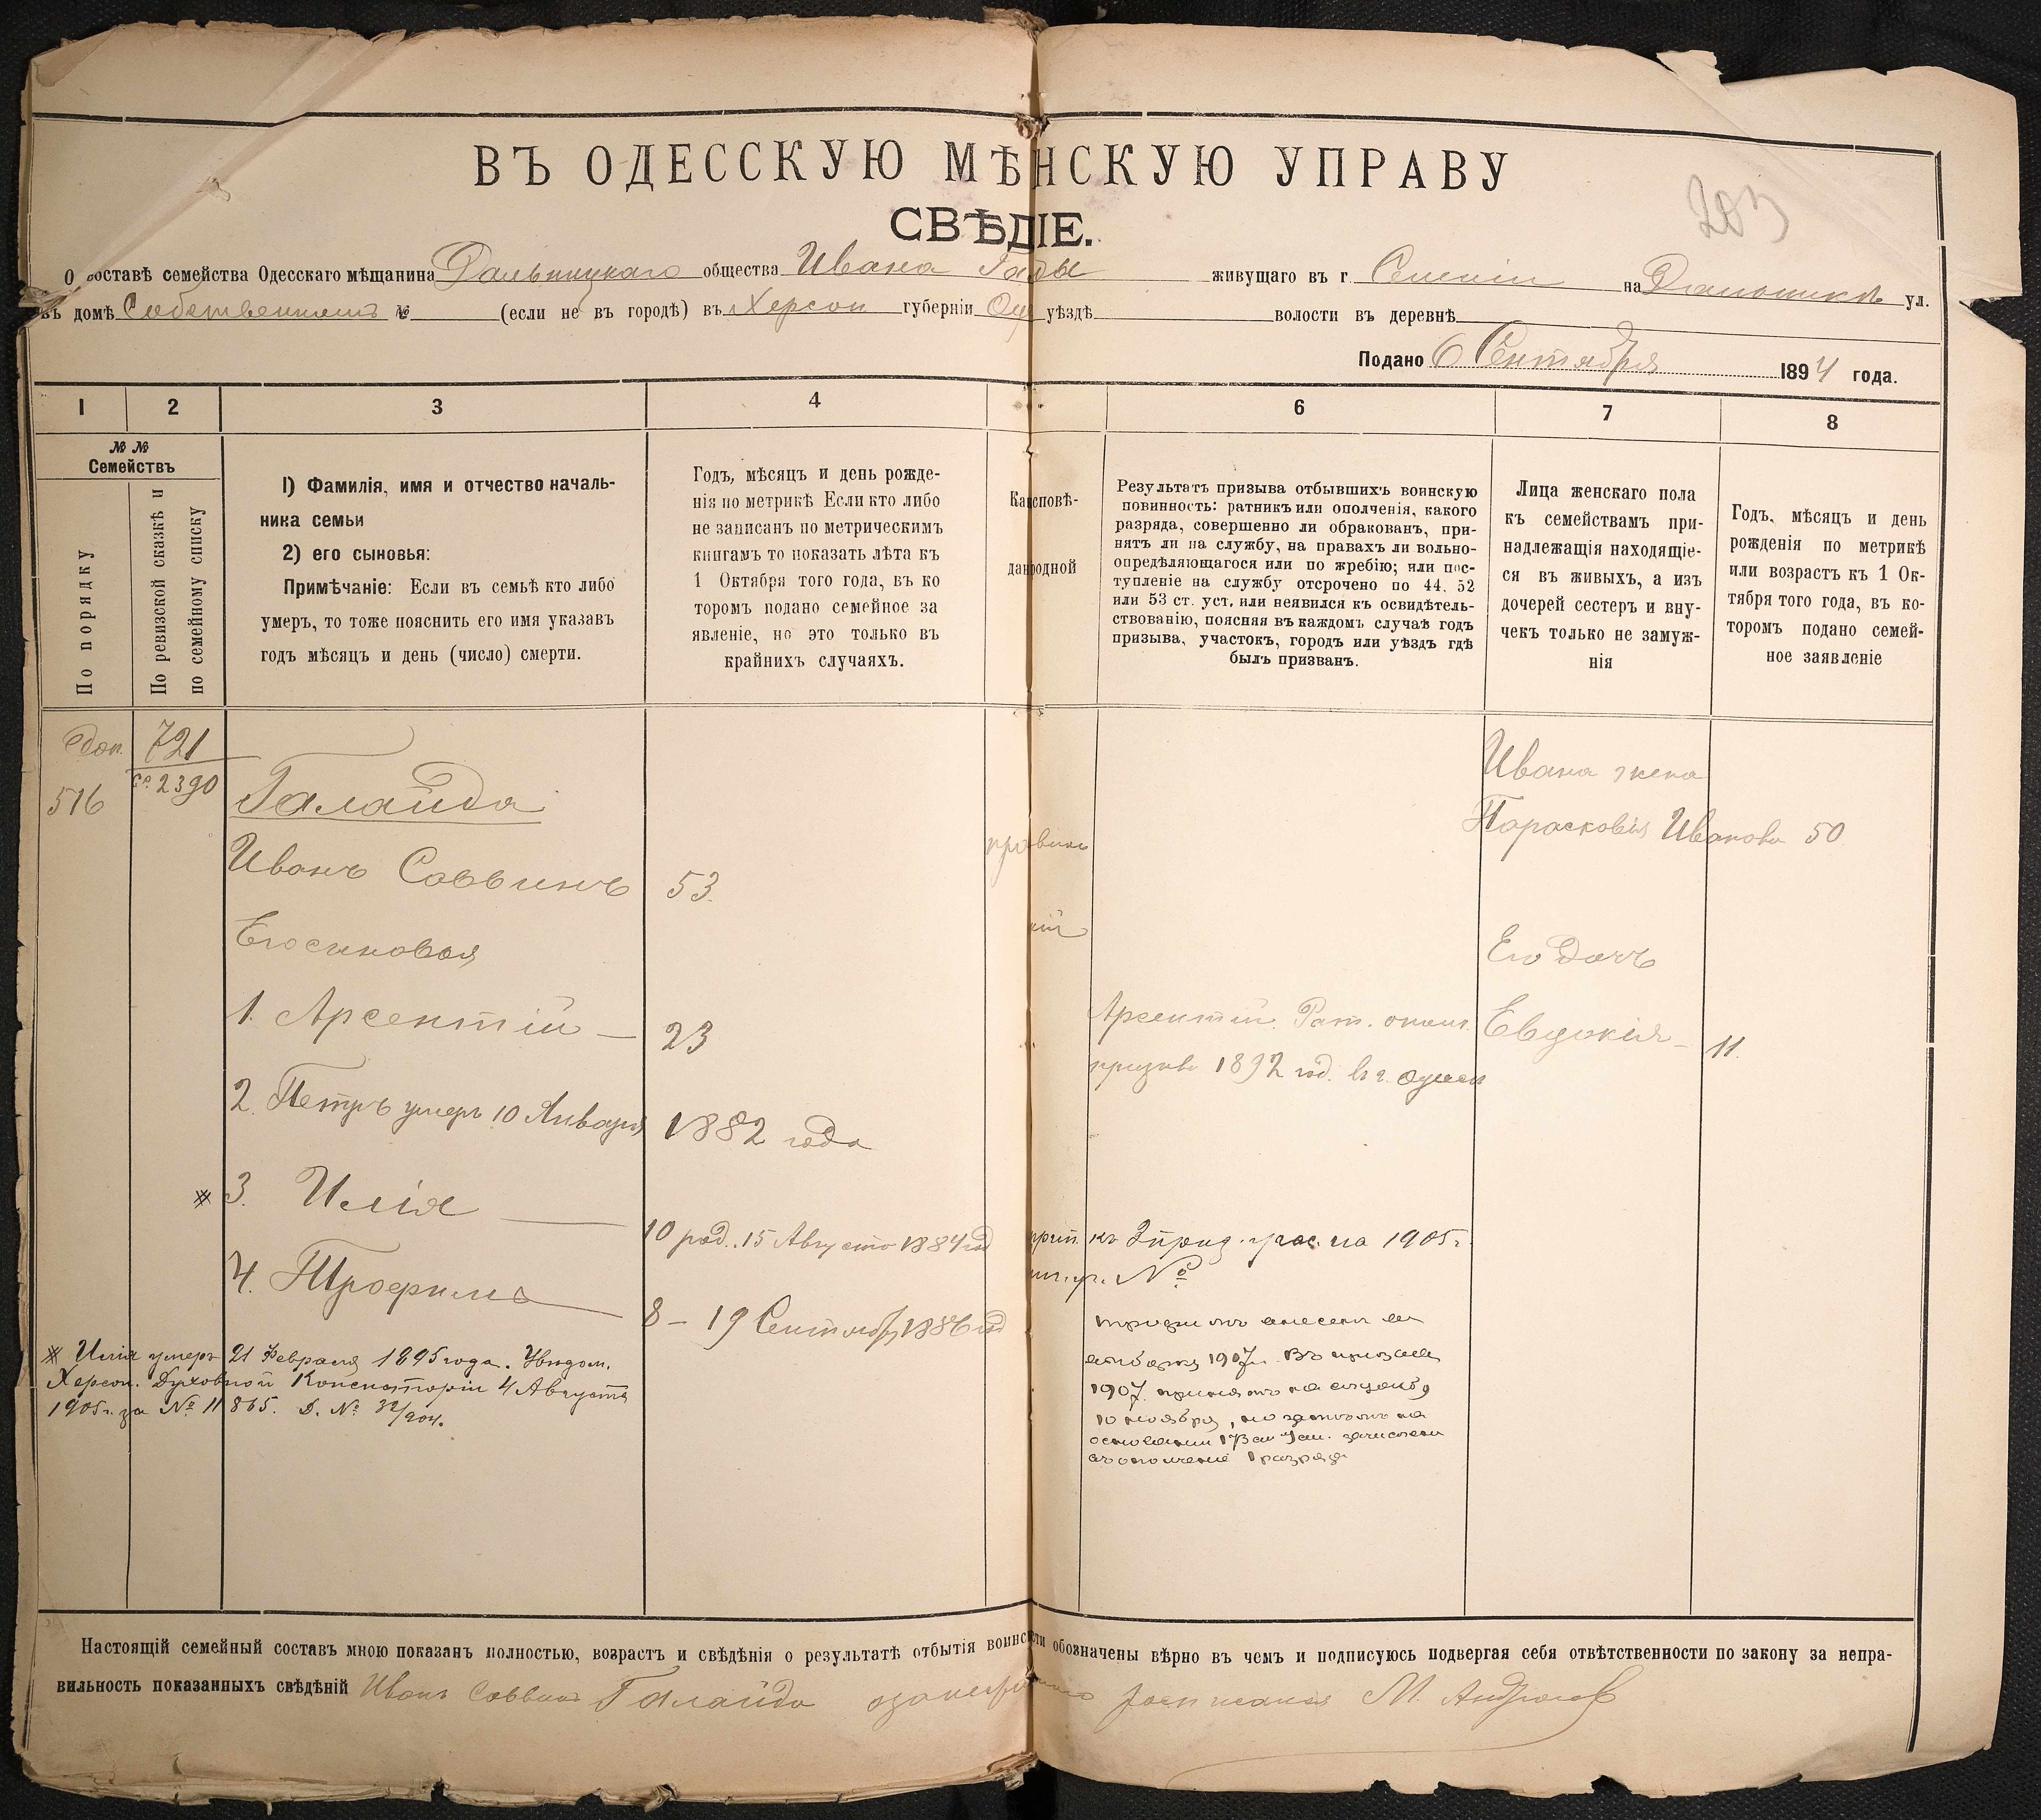 203
ВЪ ОДЕССКУЮ МѢНСКУЮ УПРАВУ
СВѢДІЕ.
О составѣ семейства Одесскаго мѣщанина Дальницкаго общества Ивана живущаго въ г. Селеніи на Дальникѣ ул.
въ домѣ Собственномъ № (если не въ городѣ) въ Херсон губерніи Од уѣздѣ волости въ деревнѣ
Подано 6 Сентября 1894 года.
1 2 3 4 6 7 8
№ № Семействъ
По порядку
По ревизской сказкѣ и по семейному списку
I) Фамилія, имя и отчество началь-
ника семьи
2) его сыновья:
Примѣчаніе: Если въ семьѣ кто либо
умеръ, то тоже пояснить его имя указавъ
годъ мѣсяцъ и день (число) смерти.
Годъ, мѣсяцъ и день рожде-
нія по метрикѣ Если кто либо
не записанъ по метрическимъ
книгамъ то показать лѣта къ
1 Октября того года, въ ко
торомъ подано семейное за
явленіе, но это только въ
крайнихъ случаяхъ.
Ка исповѣ-
дан родной
Результатъ призыва отбывшихъ воинскую
повинность: ратникъ или ополченія, какого
разряда, совершенно ли обракованъ, при-
нятъ ли на службу, на правахъ ли вольно-
опредѣляющагося или по жребію; или пос-
тупленіе на службу отсрочено по 44, 52
или 53 ст. уст, или неявился къ освидѣтель-
ствованію, поясняя въ каждомъ случаѣ годъ
призыва, участокъ, городъ или уѣздъ гдѣ
былъ призванъ.
Лица женскаго пола
къ семействамъ при-
надлежащія находящіе-
ся въ живыхъ, а изъ
дочерей сестеръ и вну-
чекъ только не замуж-
нія
Годъ, мѣсяцъ и день
рожденія по метрикѣ
или возрастъ къ 1 Ок-
тября того года, въ ко-
торомъ подано семей-
ное заявленіе
Доп. 721
516 2390 Галайда
Ивана жена
Парасковія Иванова 50
Иванъ Саввинъ 53.
Его сыновья
Его дочь
1. Арсентій — 23
Арсентій. Рат. ополч. Евдокія — 11.
призыва 1892 год. въ г. Одессѣ
2. Петръ умеръ 10 Января 1882 года
3. Илія — 10 род. 15 Августа 1884 год
прип. къ 3 приз. учас. на 1905 г.
№
4. Трофимъ — 8 – 19 Сентября 1886 год
Илія умеръ 21 Февраля 1895 года. Увѣдом.
Херсон. Духовной Консисторіи 4 Августа
1905 г. за № 11865. Д. №
Трофимъ внесенъ въ
1907 г. Въ призывъ
1907 принятъ на службу
10 ноября, но затѣмъ на
основаніи зачисленъ
въ ополченіе 1 разряда
Настоящій семейный составъ мною показанъ полностью, возрастъ и свѣдѣнія о результатѣ отбытія воинс ти обозначены вѣрно въ чемъ и подписуюсь подвергая себя отвѣтственности по закону за непра-
вильность показанныхъ свѣдѣній Иванъ Саввинъ Галайда